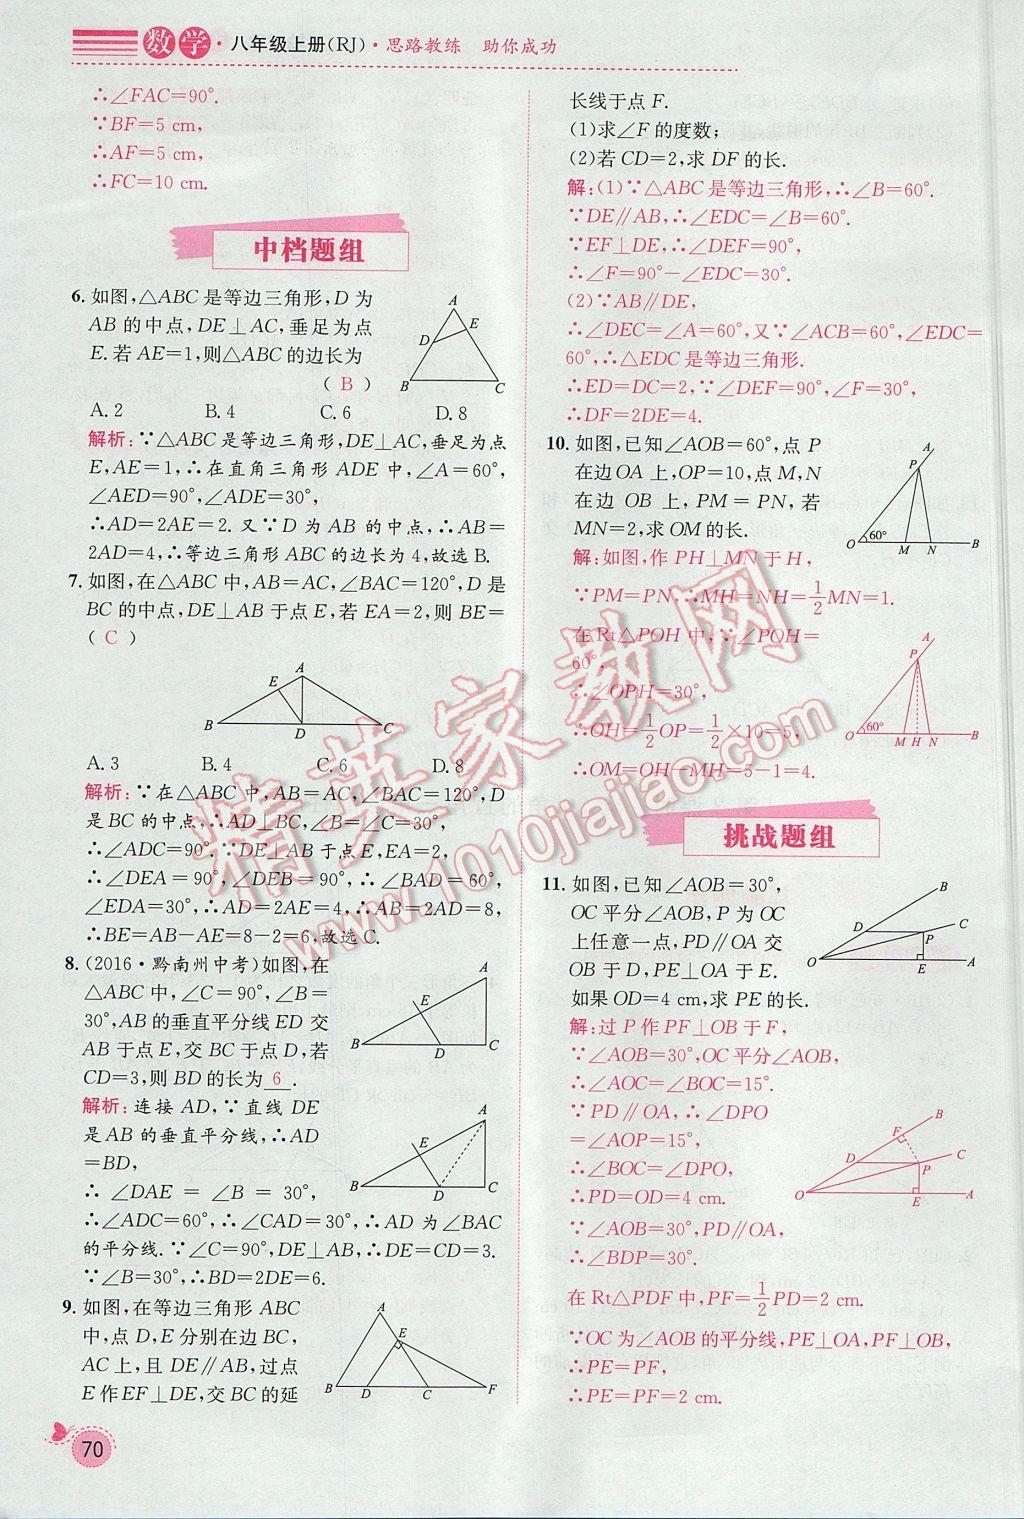 数学·八年级上册(RJ)·思路教练 助你成功
∴∠FAC=90°.
∵BF=5 cm,
∴AF=5 cm,
∴FC=10 cm.
中档题组
6. 如图,△ABC是等边三角形,D为
AB的中点,DE⊥AC,垂足为点
E.若AE=1,则△ABC的边长为
( B )
A B C D E
A.2 B.4 C.6 D.8
解析:∵△ABC是等边三角形,DE⊥AC,垂足为点
E,AE=1,∴在直角三角形ADE中,∠A=60°,
∠AED=90°,∠ADE=30°,
∴AD=2AE=2.又∵D为AB的中点,∴AB=
2AD=4,∴等边三角形ABC的边长为4,故选B.
7. 如图,在△ABC中,AB=AC,∠BAC=120°,D是
BC的中点,DE⊥AB于点E,若EA=2,则BE=
( C )
A E B D C
A.3 B.4 C.6 D.8
解析:∵在△ABC中,AB=AC,∠BAC=120°,D
是BC的中点,∴AD⊥BC,∠B=∠C=30°,
∴∠ADC=90°.∵DE⊥AB于点E,EA=2,
∴∠DEA=90°,∠DEB=90°,∴∠BAD=60°,
∠EDA=30°,∴AD=2AE=4,∴AB=2AD=8,
∴BE=AB-AE=8-2=6,故选C.
8. (2016·黔南州中考)如图,在
△ABC中,∠C=90°,∠B=
30°,AB的垂直平分线ED交
AB于点E,交BC于点D,若
CD=3,则BD的长为 6 .
A E B D C
解析:连接AD,∵直线DE
是AB的垂直平分线,∴AD
=BD,
∴∠DAE=∠B=30°,
∴∠ADC=60°,∴∠CAD=30°,∴AD为∠BAC
的平分线.∵∠C=90°,DE⊥AB,∴DE=CD=3.
∵∠B=30°,∴BD=2DE=6.
A E B D C
9. 如图,在等边三角形ABC
中,点D,E分别在边BC,
AC上,且DE∥AB,过点
E作EF⊥DE,交BC的延
A E B D C F
70
长线于点F.
(1)求∠F的度数;
(2)若CD=2,求DF的长.
解:(1)∵△ABC是等边三角形,∴∠B=60°.
∵DE∥AB,∴∠EDC=∠B=60°.
∵EF⊥DE,∴∠DEF=90°,
∴∠F=90°-∠EDC=30°.
(2)∵AB∥DE,
∴∠DEC=∠A=60°,又∵∠ACB=60°,∠EDC=
60°,∴△EDC是等边三角形.
∴ED=DC=2,∵∠DEF=90°,∠F=30°,
∴DF=2DE=4.
10. 如图,已知∠AOB=60°,点P
在边OA上,OP=10,点M,N
在边OB上,PM=PN,若
MN=2,求OM的长.
A P 60° O M N B
解:如图,作PH⊥MN于H,
∵PM=PN,∴MH=NH=1/2MN=1.
在Rt△POH中,∵∠POH=
60°,
∴∠OPH=30°,
∴OH=1/2OP=1/2×10=5,
∴OM=OH-MH=5-1=4.
A P 60° O M H N B
挑战题组
11. 如图,已知∠AOB=30°,
OC平分∠AOB,P为OC
上任意一点,PD∥OA交
OB于D,PE⊥OA于E.
如果OD=4 cm,求PE的长.
B C D P O E A
解:过P作PF⊥OB于F,
∵∠AOB=30°,OC平分∠AOB,
∴∠AOC=∠BOC=15°.
∵PD∥OA,∴∠DPO
=∠AOP=15°,
∴∠BOC=∠DPO,
∴PD=OD=4 cm.
∵∠AOB=30°,PD∥OA,
∴∠BDP=30°.
B F C D P O E A
在Rt△PDF中,PF=1/2PD=2 cm.
∵OC为∠AOB的平分线,PE⊥OA,PF⊥OB,
∴PE=PF,
∴PE=PF=2 cm.
精英家教网
www.1010jiajiao.com